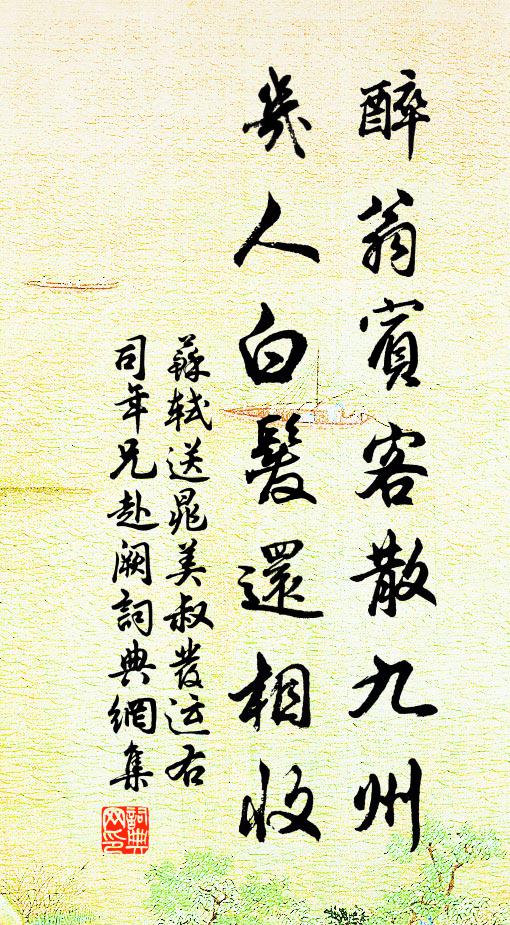 醉翁賓客散九州
幾人白髮還相收
蘇軾送晁美叔發運右
司年兄赴闕詞典網集
詞典網印